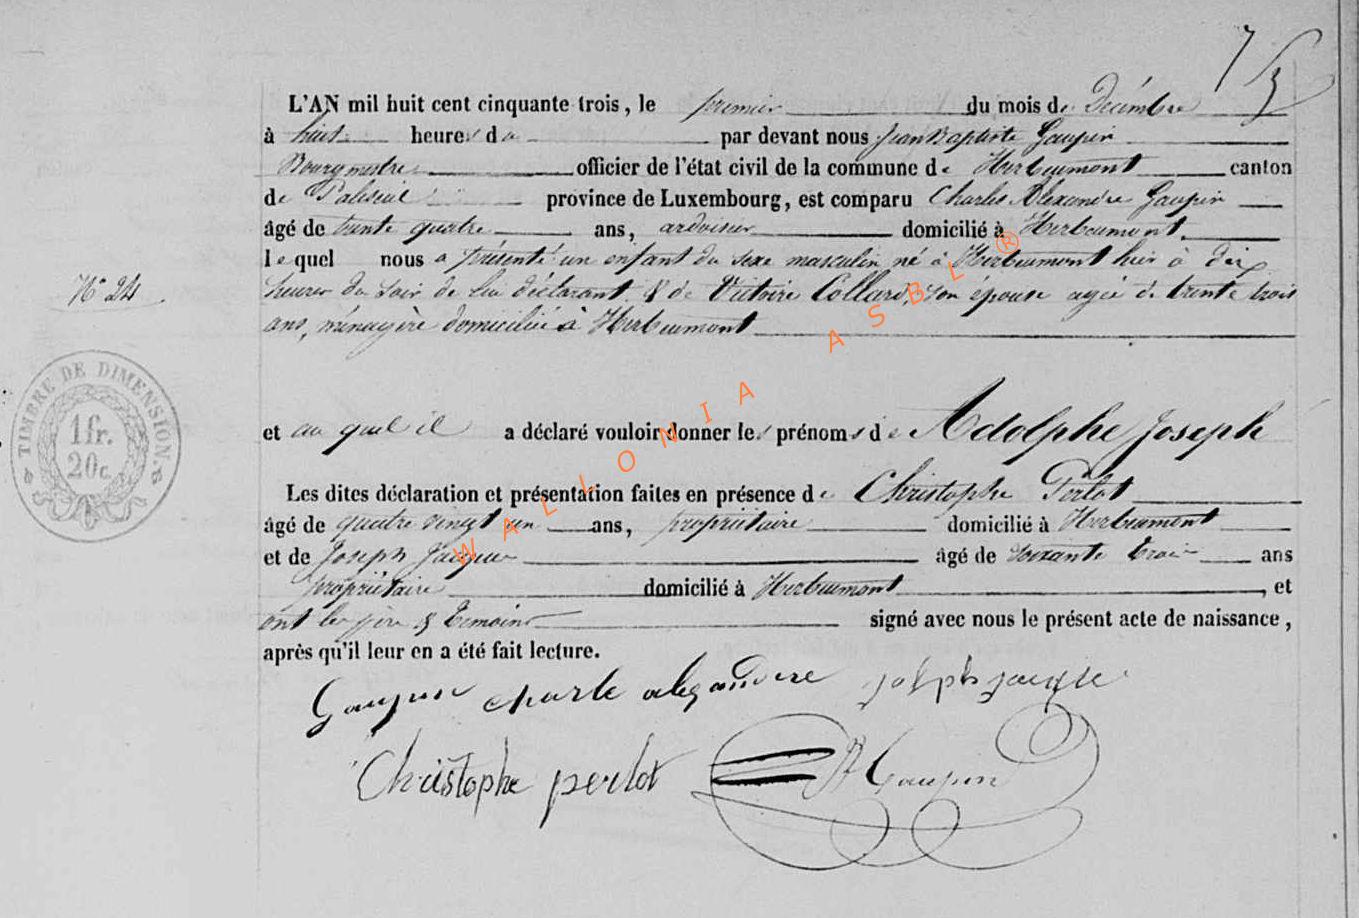 L'AN mil huit cent cinquante trois, le premier du mois de Décembre
à huit heures da par devant nous Jean Baptiste Gaupin
Bourgmestre officier de l'état civil de la commune de Herbeumont canton
de Paliseul province de Luxembourg, est comparu Charles Alexandre Gaupin
âgé de trente quatre ans, ardoisier domicilié à Herbeumont
lequel nous a présenté un enfant du sexe masculin né à Herbeumont hier à dix
N° 24
heures du soir de lui déclarant & de Victoire Collard, son épouse agée de trente trois
ans, ménagère domiciliée à Herbeumont
TIMBRE DE DIMENSION
1 fr.
20 c.
et au quel il a déclaré vouloir donner les prénoms de Adolphe Joseph
Les dites déclaration et présentation faites en présence de Christophe Perlot
âgé de quatre vingt un ans, propriétaire domicilié à Herbeumont
et de Joseph Jacque âgé de soixante trois ans
propriétaire domicilié à Herbeumont, et
ont les père & témoins signé avec nous le présent acte de naissance,
après qu'il leur en a été fait lecture.
Gaupin charle alexandere joseph jacque
Christophe perlot JB Gaupin
WALLONIA ASBL ®